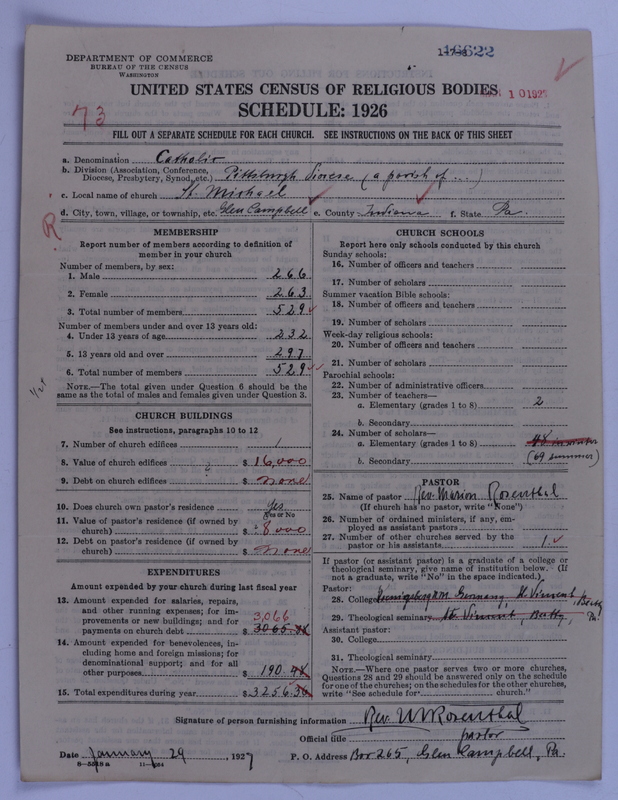 16622
DEPARTMENT OF COMMERCE
BUREAU OF THE CENSUS
WASHINGTON
UNITED STATES CENSUS OF RELIGIOUS BODIES
SCHEDULE: 1926
73
FILL OUT A SEPARATE SCHEDULE FOR EACH CHURCH. SEE INSTRUCTIONS ON THE BACK OF THIS SHEET
a. Denomination Catholic
b. Division (Association, Conference, Diocese, Presbytery, Synod, etc.) Pittsburgh Diocese (a parish of ...)
c. Local name of church St. Michael
d. City, town, village, or township, etc. Glen Campbell e. County Indiana f. State Pa.
R
MEMBERSHIP
Report number of members according to definition of
member in your church
Number of members, by sex:
1. Male 266
2. Female 263
3. Total number of members 529
Number of members under and over 13 years old:
4. Under 13 years of age 232
5. 13 years old and over 297
6. Total number of members 529
NOTE.—The total given under Question 6 should be the
same as the total of males and females given under Question 3.
CHURCH BUILDINGS
See instructions, paragraphs 10 to 12
7. Number of church edifices 1
8. Value of church edifices $ 16,000
9. Debt on church edifices $ none
10. Does church own pastor's residence Yes
Yes or No
11. Value of pastor's residence (if owned by
church) $ 8,000
12. Debt on pastor's residence (if owned by
church) $ none
EXPENDITURES
Amount expended by your church during last fiscal year
13. Amount expended for salaries, repairs,
and other running expenses; for im-
provements or new buildings; and for
payments on church debt $ 3,066 3065.
14. Amount expended for benevolences, in-
cluding home and foreign missions; for
denominational support; and for all
other purposes $ 190.
15. Total expenditures during year $ 3256.36
CHURCH SCHOOLS
Report here only schools conducted by this church
Sunday schools:
16. Number of officers and teachers
17. Number of scholars
Summer vacation Bible schools:
18. Number of officers and teachers
19. Number of scholars
Week-day religious schools:
20. Number of officers and teachers
21. Number of scholars
Parochial schools:
22. Number of administrative officers
23. Number of teachers—
a. Elementary (grades 1 to 8) 2
b. Secondary
24. Number of scholars—
a. Elementary (grades 1 to 8)
b. Secondary (69 summer)
PASTOR
25. Name of pastor Rev. Marion Rosenthal
(If church has no pastor, write "None")
26. Number of ordained ministers, if any, em-
ployed as assistant pastors
27. Number of other churches served by the
pastor or his assistants 1
If pastor (or assistant pastor) is a graduate of a college or
theological seminary, give name of institution below. (If
not a graduate, write "No" in the space indicated.)
Pastor:
28. College Germany, St. Vincent, Beatty
29. Theological seminary St. Vincent, Beatty, Pa.
Assistant pastor:
30. College
31. Theological seminary
NOTE.—Where one pastor serves two or more churches,
Questions 28 and 29 should be answered only on the schedule
for one of the churches; on the schedules for the other churches,
write "See schedule for church."
Signature of person furnishing information Rev. M Rosenthal
Official title pastor
Date January 29, 1927 P. O. Address Box 265, Glen Campbell, Pa.